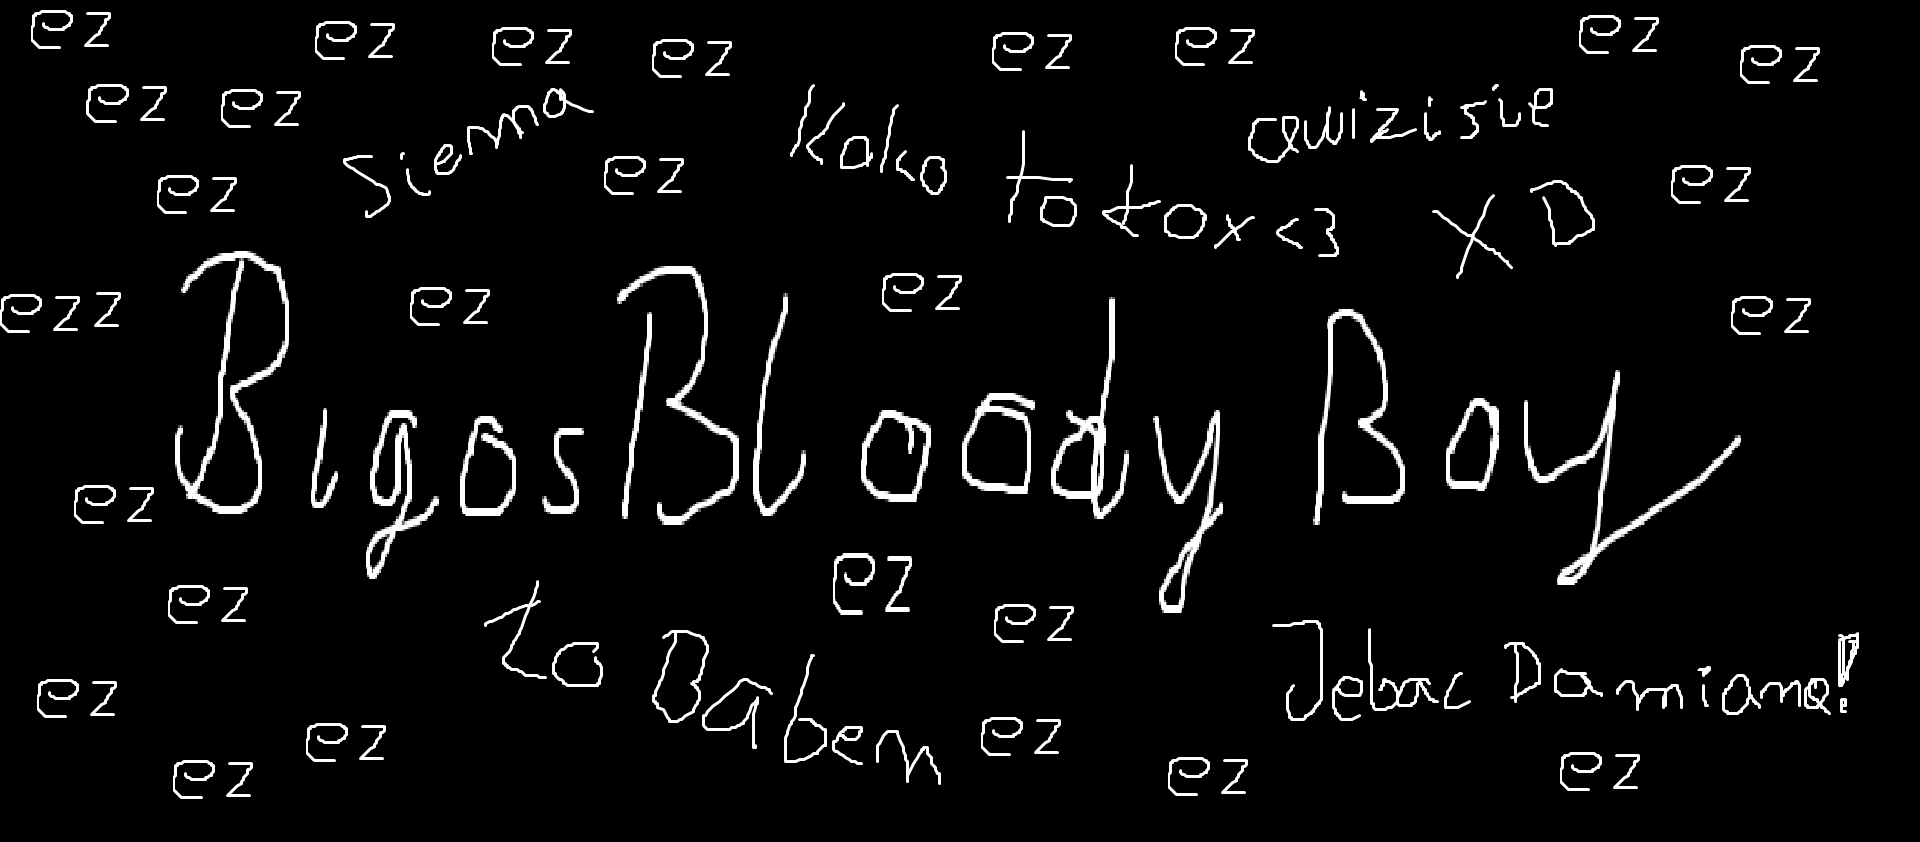 ez ez ez ez ez ez ez ez
ez ez
Siema
ez
Kako to totox<3
qwizisie XD
ez
ez
ezz
ez
ez
ez
BigosBloodyBoy
ez
ez
ez
ez
to Baben
Jebac Damiana!
ez
ez
ez
ez
ez
ez